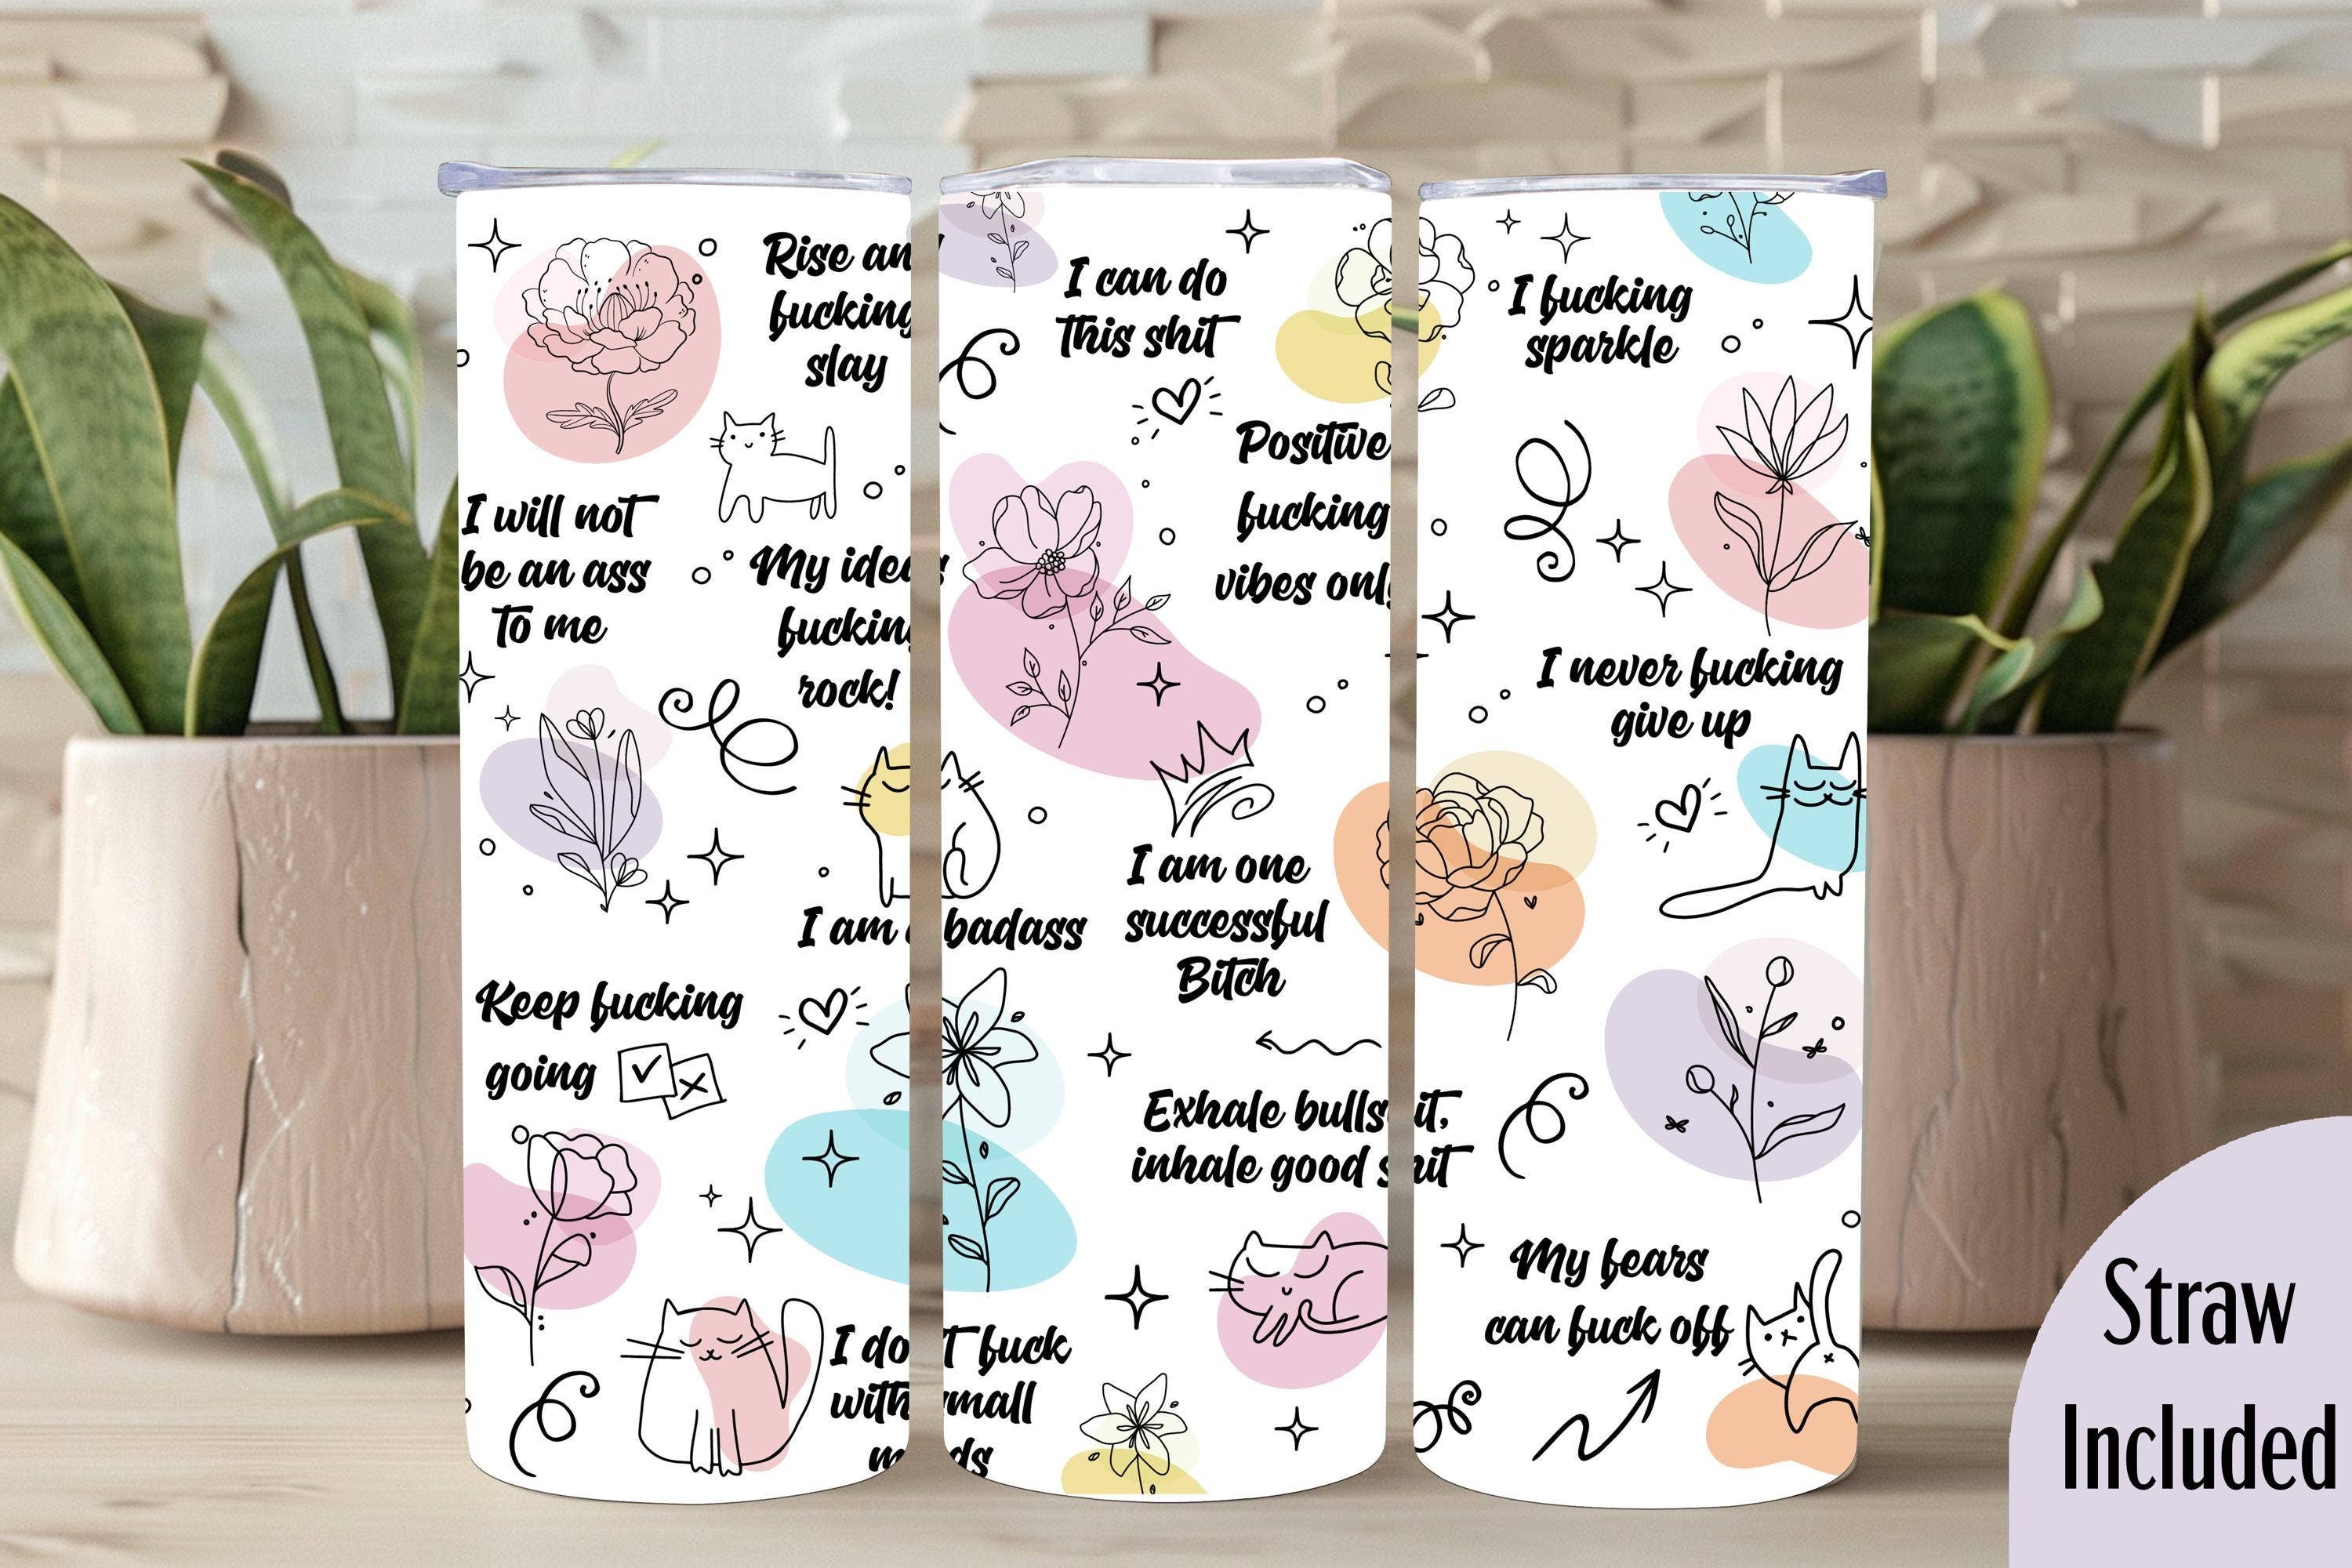 Rise an
fucking
slay
I will not
be an ass
to me
My ideas
fuckin
rock!
I am a badass
Keep fucking
going
I do t fuck
with small
m ds
I can do
this shit
Positive
fucking
vibes only
I am one
successful
Bitch
Exhale bulls it,
inhale good shit
I fucking
sparkle
I never fucking
give up
My fears
can fuck off
Straw
Included